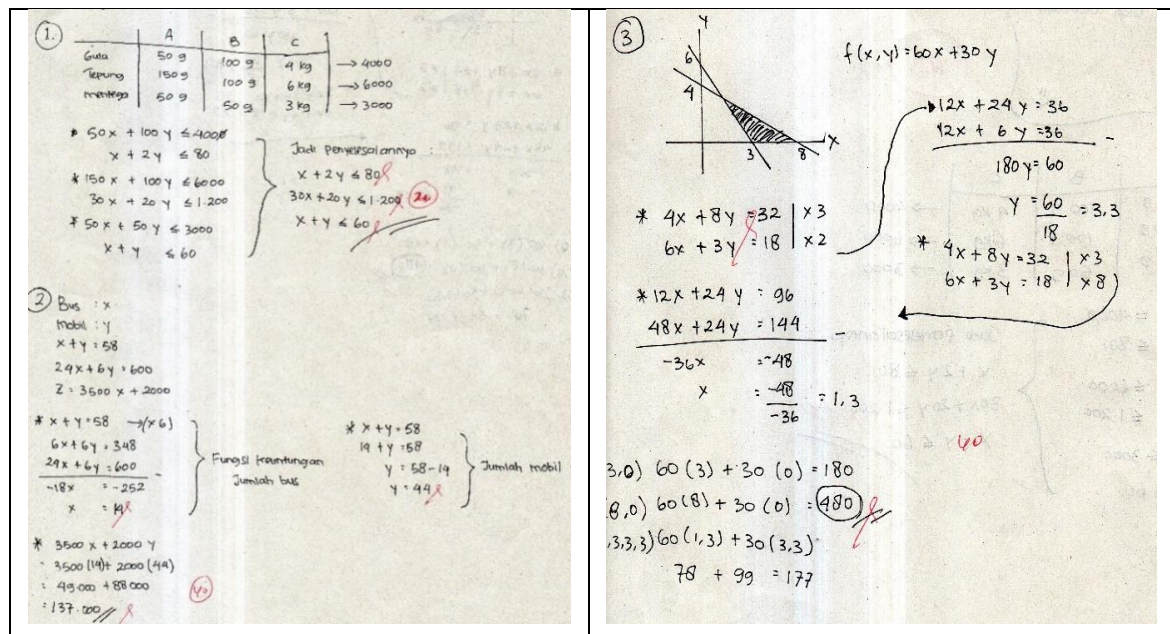 1.
A B C
Gula 50 g 100 g 4 kg → 4000
Tepung 150 g 100 g 6 kg → 6000
mentega 50 g 50 g 3 kg → 3000
* 50x + 100y ≤ 4000
x + 2y ≤ 80
* 150x + 100y ≤ 6000
30x + 20y ≤ 1.200
* 50x + 50y ≤ 3000
x + y ≤ 60
Jadi penyelesaiannya
x + 2y ≤ 80
30x + 20y ≤ 1.200
x + y ≤ 60
20
2
Bus : x
mobil : y
x + y = 58
24x + 6y = 600
Z = 3500x + 2000
* x + y = 58 → (x6)
6x + 6y = 348
24x + 6y = 600 -
-18x = -252
x = 14
Fungsi keuntungan
Jumlah bus
* x + y = 58
14 + y = 58
y = 58 - 14
y = 44
Jumlah mobil
* 3500x + 2000y
= 3500(14) + 2000(44)
= 49.000 + 88000
= 137.000
40
3
Y
6
4
3 8 X
f(x,y) = 60x + 30y
* 4x + 8y = 32 | x3
6x + 3y = 18 | x2
12x + 24y = 36
12x + 6y = 36 -
180y = 60
y = 60/18 = 3,3
* 4x + 8y = 32 | x3
6x + 3y = 18 | x8
* 12x + 24y = 96
48x + 24y = 144 -
-36x = -48
x = -48/-36 = 1,3
40
3,0) 60(3) + 30(0) = 180
8,0) 60(8) + 30(0) = 480
,3,3,3) 60(1,3) + 30(3,3)
78 + 99 = 177